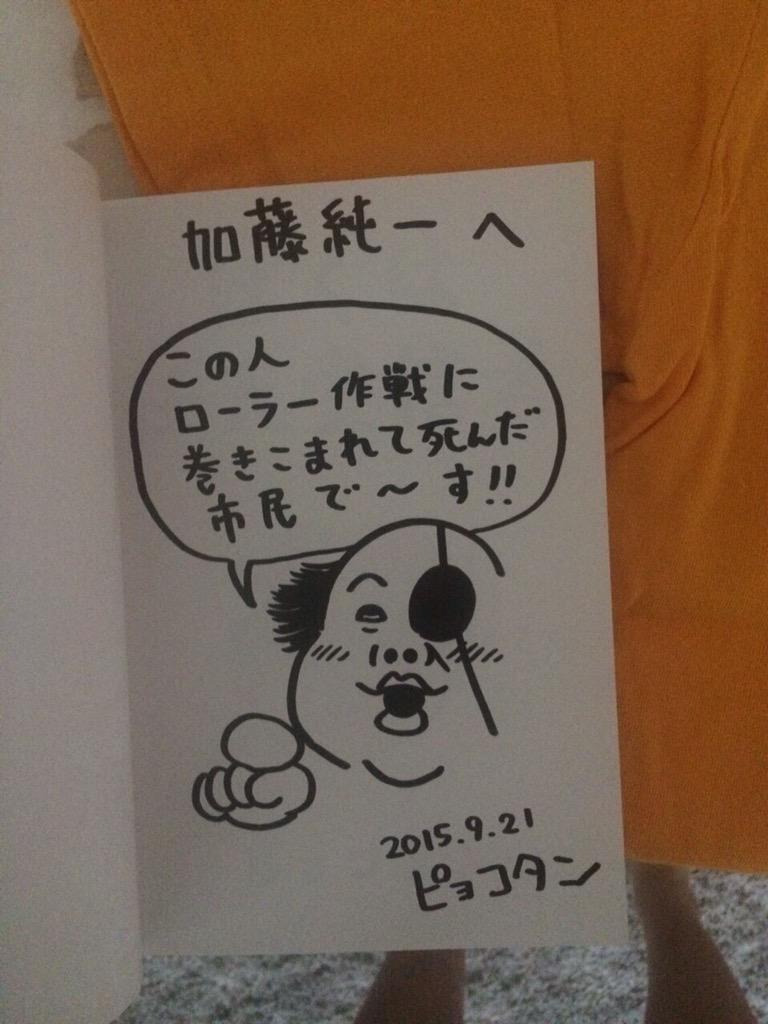 加藤純一へ
この人
ローラー作戦に
巻きこまれて死んだ
市民で〜す!!
2015.9.21
ピョコタン